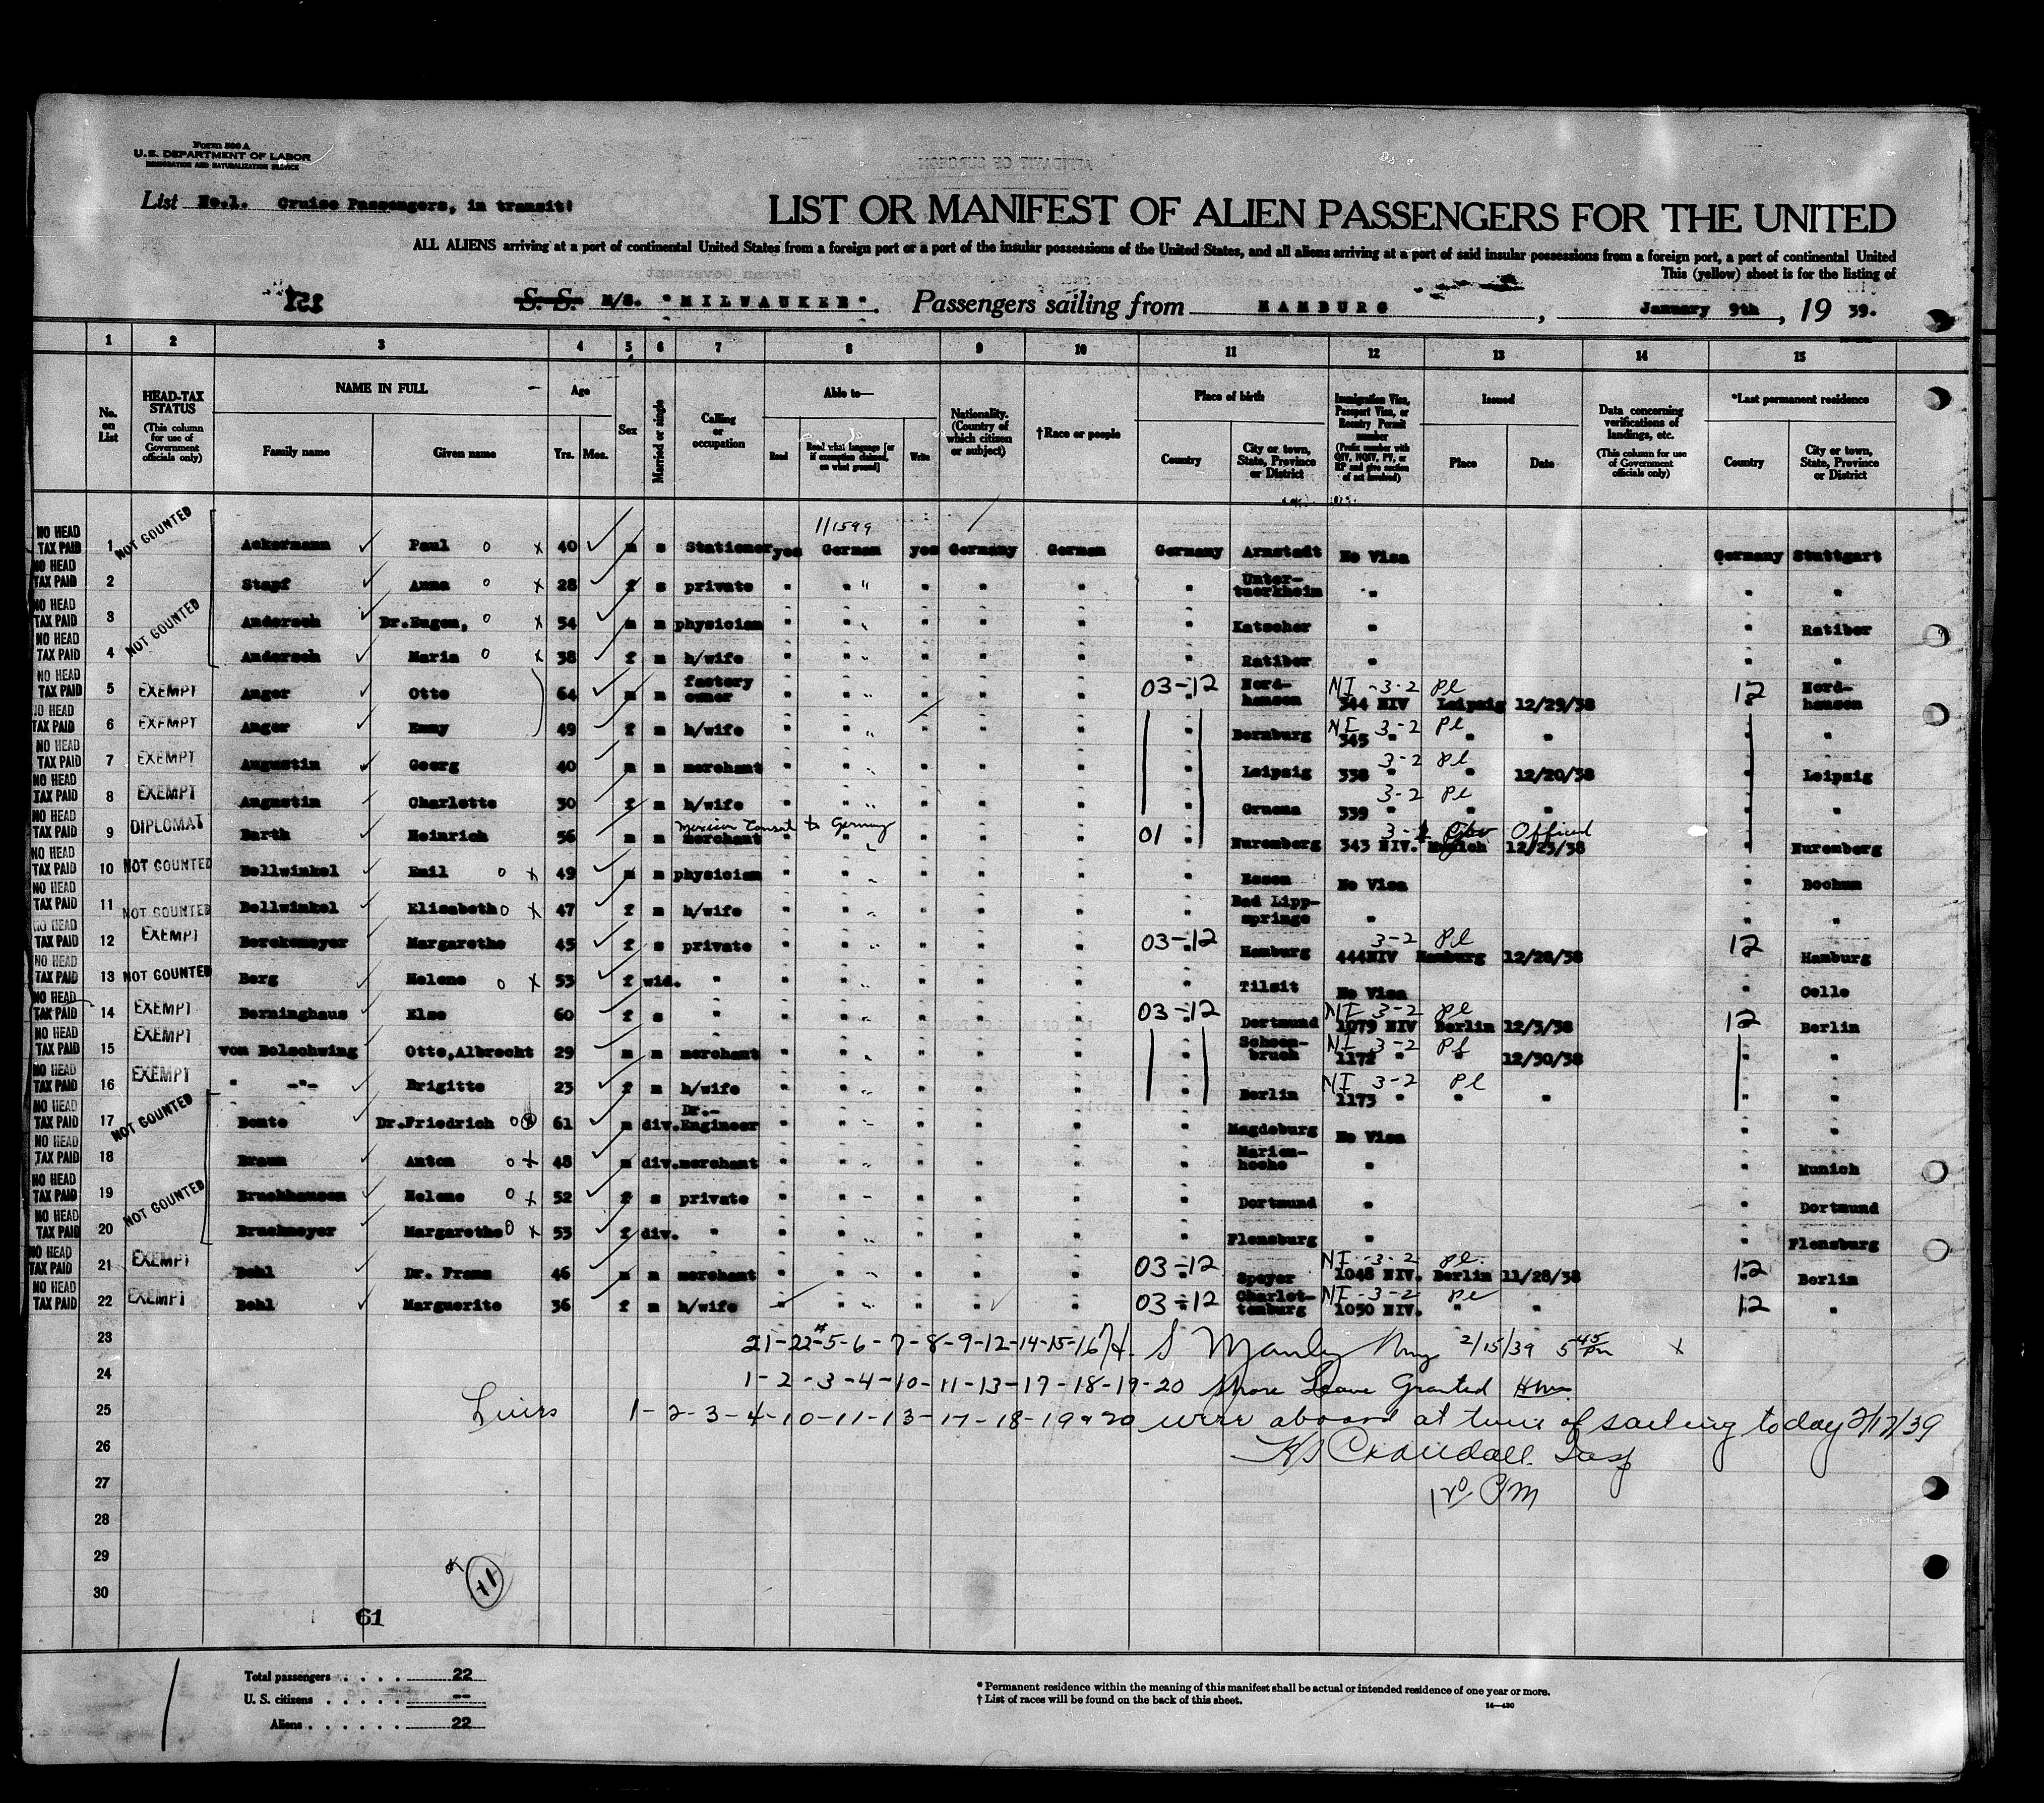 Form 500 A
U.S. DEPARTMENT OF LABOR
IMMIGRATION AND NATURALIZATION SERVICE
List No.1. Cruise Passengers, in transit!
LIST OR MANIFEST OF ALIEN PASSENGERS FOR THE UNITED
ALL ALIENS arriving at a port of continental United States from a foreign port or a port of the insular possessions of the United States, and all aliens arriving at a port of said insular possessions from a foreign port, a port of continental United
This (yellow) sheet is for the listing of
S. S. M/S. "MILWAUKEE". Passengers sailing from HAMBURG, January 9th, 19 39.
1 2 3 4 5 6 7 8 9 10 11 12 13 14 15
No. on List
HEAD-TAX STATUS (This column for use of Government officials only)
NAME IN FULL Family name Given name
Age Yrs. Mos.
Sex
Married or single
Calling or occupation
Able to— Read Read what language [or if exemption claimed, on what ground] Write
Nationality. (Country of which citizen or subject)
†Race or people
Place of birth Country City or town, State, Province or District
Immigration Visa, Passport Visa, or Reentry Permit number (Prefix number with QIV, NQIV, PV, or RP and give section of act involved)
Issued Place Date
Data concerning verifications of landings, etc. (This column for use of Government officials only)
*Last permanent residence Country City or town, State, Province or District
1/1599
NO HEAD TAX PAID 1 NOT COUNTED Ackermann Paul 40 m s Stationer yes German yes Germany German Germany Arnstadt No Visa Germany Stuttgart
NO HEAD TAX PAID 2 Stapf Anna 28 f s private " " " " " " Unter-tuerkheim " " "
NO HEAD TAX PAID 3 NOT COUNTED Andersch Dr.Eugen, 54 m m physician " " " " " " Katscher " " Ratibor
NO HEAD TAX PAID 4 Andersch Maria 38 f m h/wife " " " " " " Ratibor " " "
NO HEAD TAX PAID 5 EXEMPT Anger Otto 64 m m factory owner " " " " " 03-12 Nord-hausen NI-3-2 Pl 344 NIV Leipzig 12/29/38 12 Nord-hausen
NO HEAD TAX PAID 6 EXEMPT Anger Emmy 49 f m h/wife " " " " " " Bernburg NI 3-2 Pl 345 " " " " "
NO HEAD TAX PAID 7 EXEMPT Augustin Georg 40 m m merchant " " " " " " Leipzig 3-2 Pl 338 " " 12/20/38 " Leipzig
NO HEAD TAX PAID 8 EXEMPT Augustin Charlotte 30 f m h/wife " " " " " " Gruena 3-2 Pl 339 " " " " "
NO HEAD TAX PAID 9 DIPLOMAT Barth Heinrich 56 m m Mexican Consul to Germany merchant " " " " " 01 " Nuremberg 3-1 Gov Official 343 NIV. Munich 12/23/38 " Nuremberg
NO HEAD TAX PAID 10 NOT COUNTED Bellwinkel Emil 49 m m physician " " " " " " Essen No Visa " Bochum
NO HEAD TAX PAID 11 NOT COUNTED Bellwinkel Elisabeth 47 f m h/wife " " " " " " Bad Lipp-springe " " "
NO HEAD TAX PAID 12 EXEMPT Berckemeyer Margarethe 45 f s private " " " " " 03-12 Hamburg 3-2 Pl 444NIV Hamburg 12/28/38 12 Hamburg
NO HEAD TAX PAID 13 NOT COUNTED Berg Helene 53 f wid. " " " " " " " Tilsit No Visa " Celle
NO HEAD TAX PAID 14 EXEMPT Berninghaus Else 60 f s " " " " " " 03-12 Dortmund NI 3-2 Pl 1079 NIV Berlin 12/3/38 12 Berlin
NO HEAD TAX PAID 15 EXEMPT von Bolschwing Otto,Albrecht 29 m m merchant " " " " " " Schoen-bruch NI 3-2 Pl 1172 " " 12/30/38 " "
NO HEAD TAX PAID 16 EXEMPT " -"- Brigitte 23 f m h/wife " " " " " " Berlin NI 3-2 Pl 1173 " " " " "
NO HEAD TAX PAID 17 NOT COUNTED Bonte Dr.Friedrich 61 m div. Dr.-Engineer " " " " " " Magdeburg No Visa " "
NO HEAD TAX PAID 18 Braun Anton 48 m div. merchant " " " " " " Marien-hoehe " " Munich
NO HEAD TAX PAID 19 NOT COUNTED Bruckhausen Helene 52 f s private " " " " " " Dortmund " " Dortmund
NO HEAD TAX PAID 20 Bruckmeyer Margarethe 53 f div. " " " " " " " Flensburg " " Flensburg
NO HEAD TAX PAID 21 EXEMPT Buhl Dr. Franz 46 m m merchant " " " " " 03-12 Speyer NI-3-2 Pl. 1048 NIV. Berlin 11/28/38 12 Berlin
NO HEAD TAX PAID 22 EXEMPT Buhl Marguerite 36 f m h/wife " " " " " 03-12 Charlot-tenburg NI-3-2 Pl 1050 NIV. " " 12 "
23 21-22-5-6-7-8-9-12-14-15-16 H. S Manley 2/15/39 5 45 pm x
24 1-2-3-4-10-11-13-17-18-19-20 Shore Leave Granted
25 Lines 1-2-3-4-10-11-13-17-18-19 & 20 were aboard at time of sailing today 2/17/39
26 Crandall
27 PM
28
29
30
61
11
Total passengers . . . . 22
U. S. citizens . . . . . --
Aliens . . . . . . 22
* Permanent residence within the meaning of this manifest shall be actual or intended residence of one year or more.
† List of races will be found on the back of this sheet.
14—430